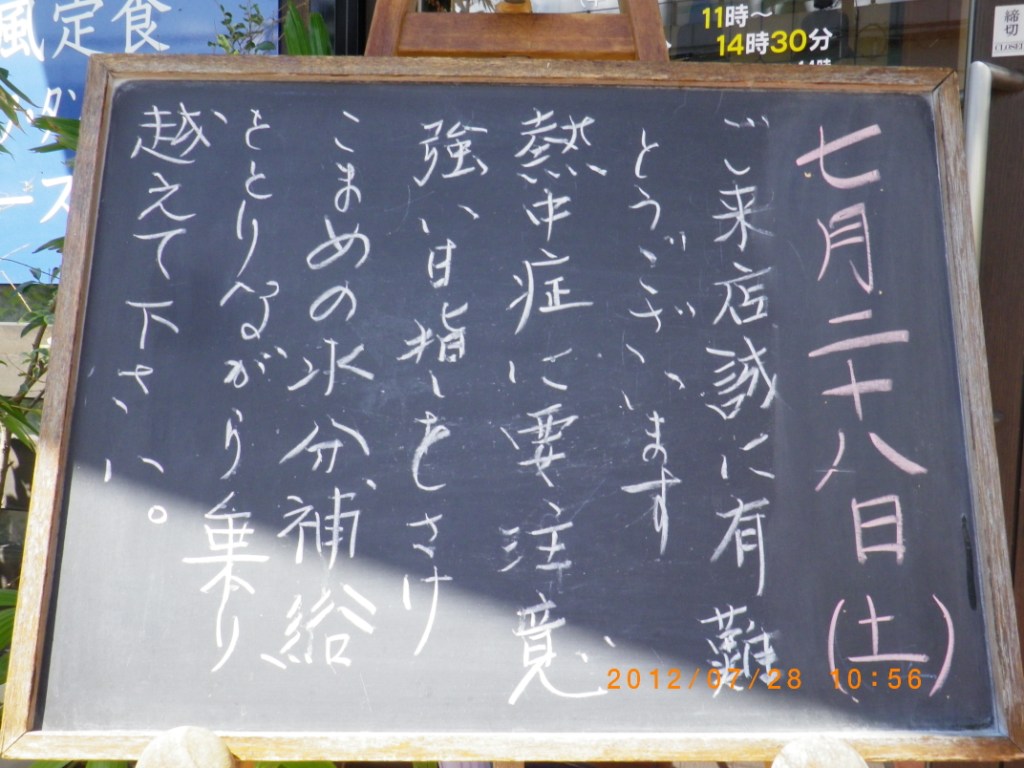 七月二十八日(土)
ご来店誠に有難
とうございます
熱中症に要注意
強い日指しをさけ
こまめの水分補給
をとりながら乗り
越えて下さい。
風定食
ース
11時～
14時30分
締切
CLOSE
2012/07/28 10:56